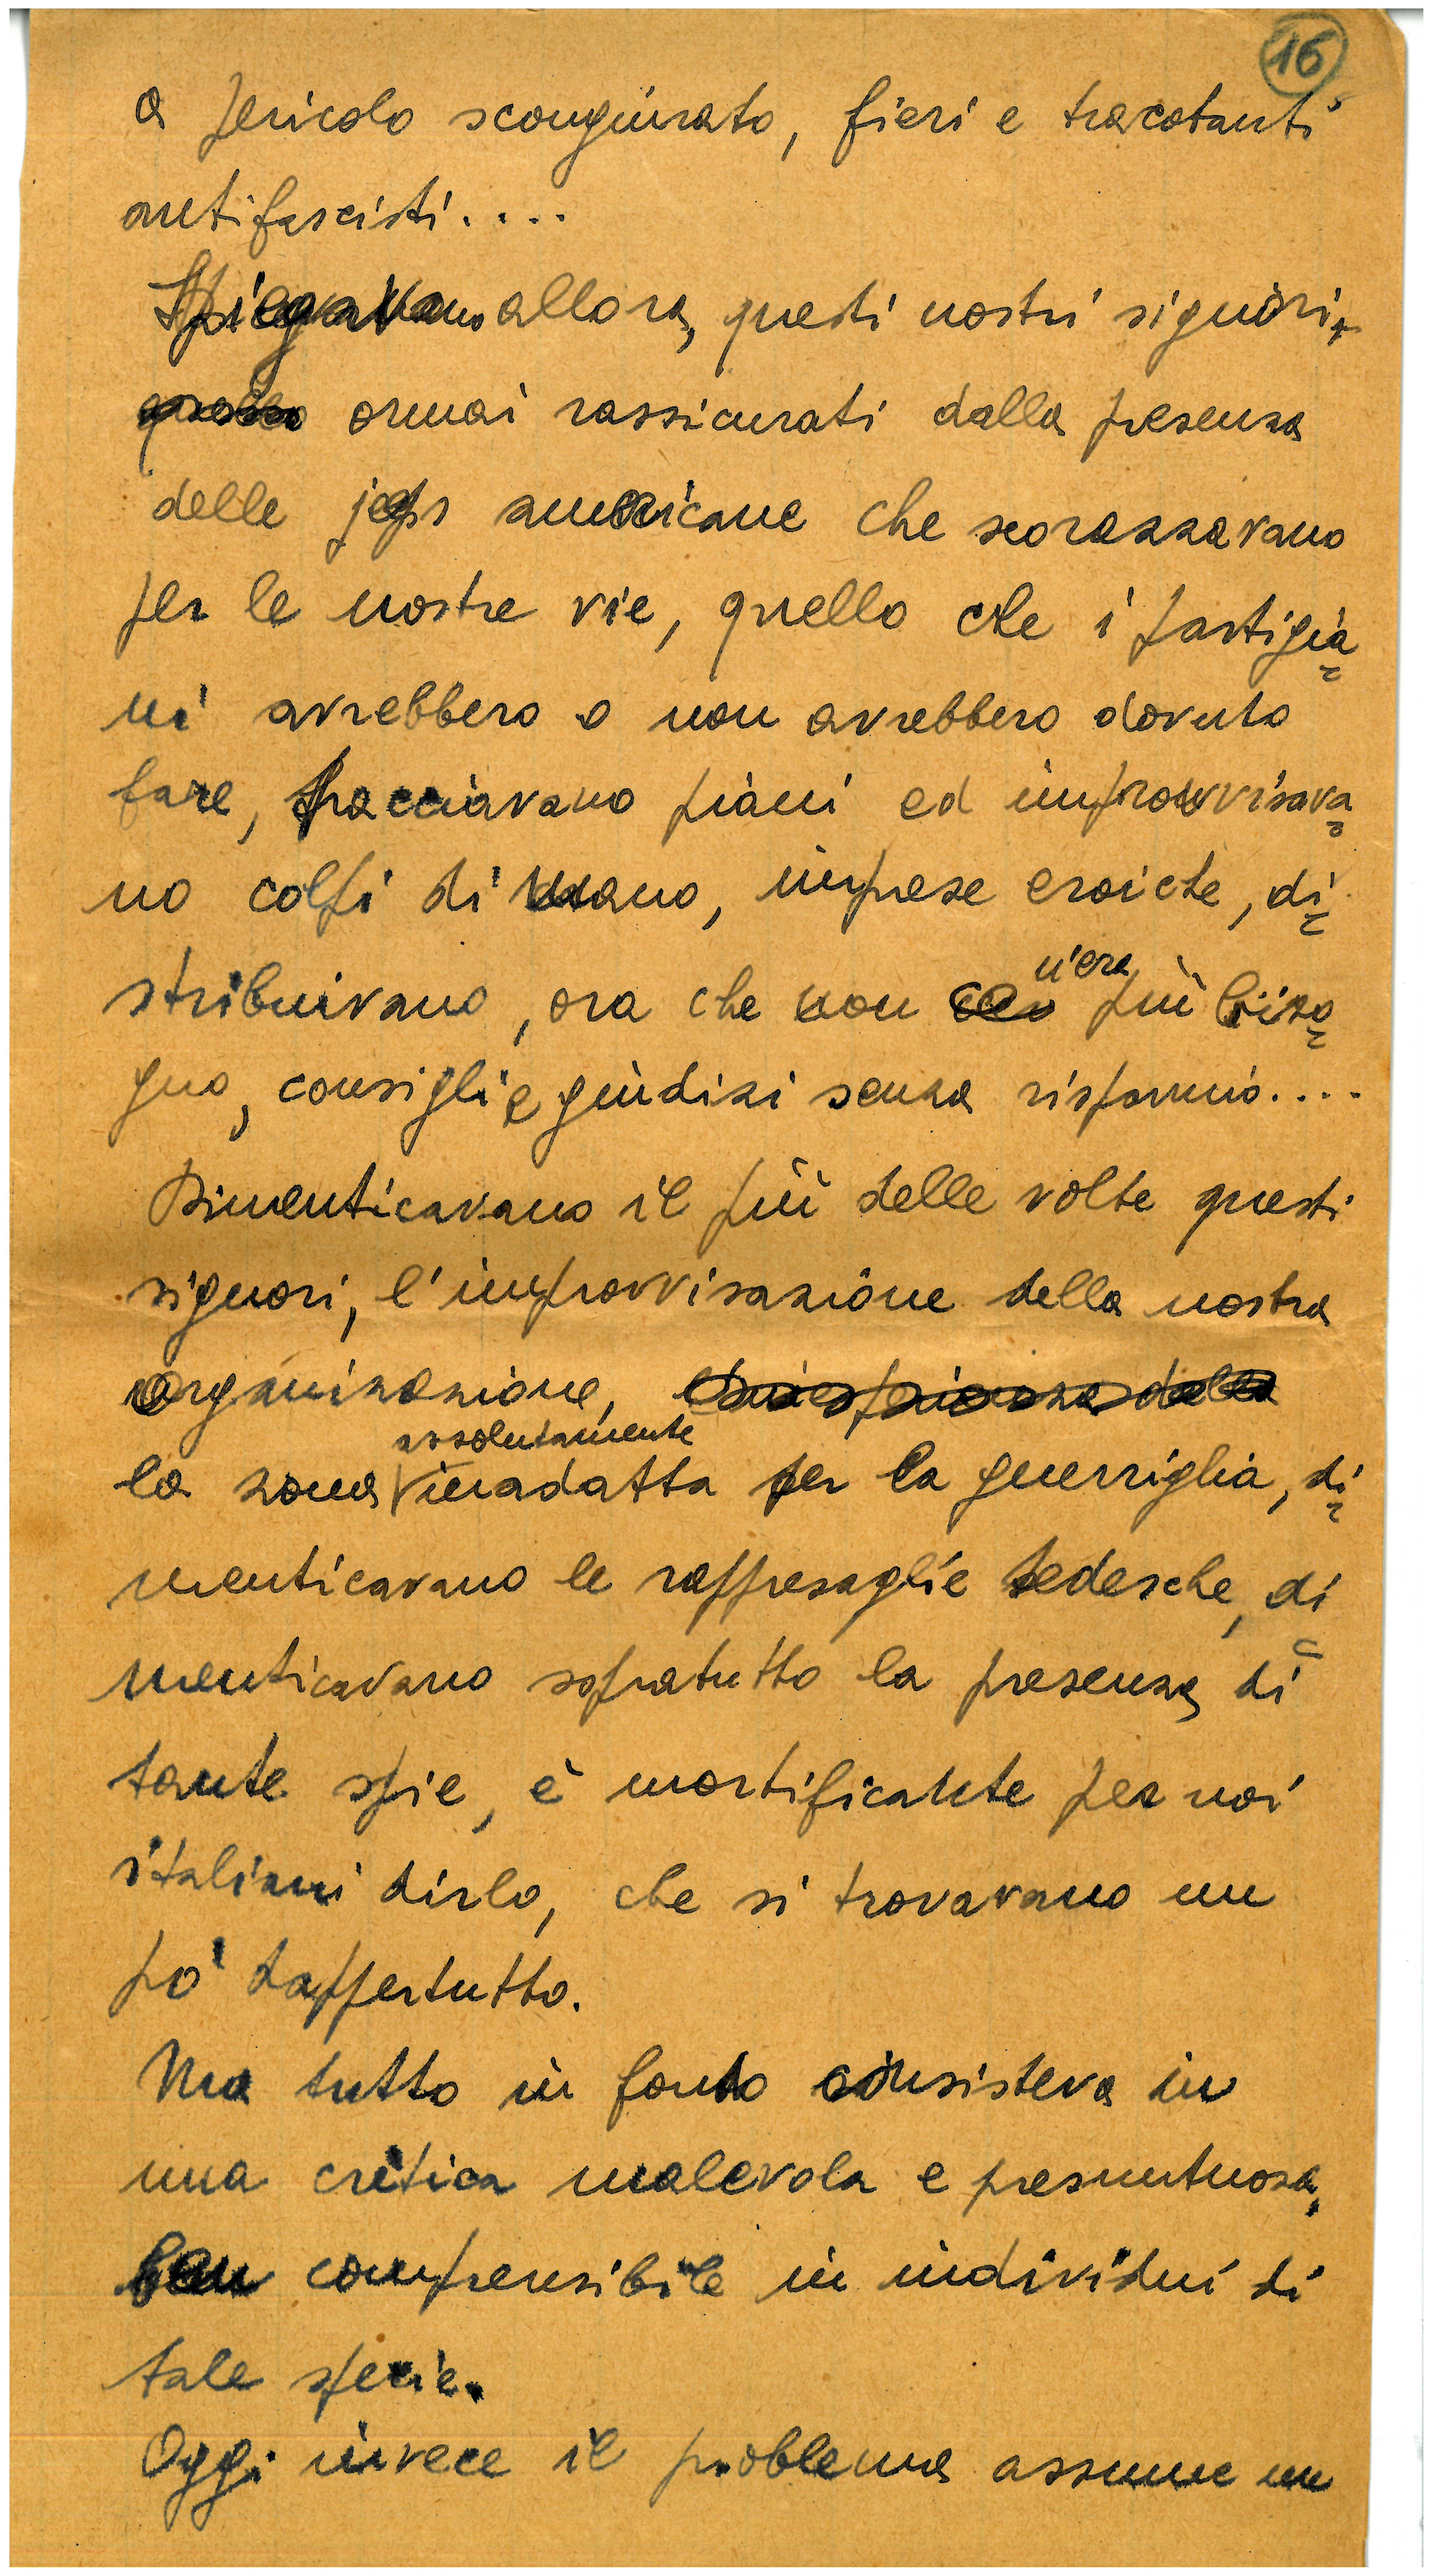 16
a pericolo scongiurato, fieri e tracotanti
antifascisti....
Spiegavano allora, questi nostri signori,
ormai rassicurati dalla presenza
delle jeeps americane che scorazzavano
per le nostre vie, quello che i partigia=
ni avrebbero o non avrebbero dovuto
fare, tracciavano piani ed improvvisava=
no colpi di mano, imprese eroiche, di=
stribuivano, ora che non n'era più biso=
gno, consigli e giudizi senza risparmio....
Dimenticavano il più delle volte questi
signori, l'improvvisazione della nostra
organizzazione,
la zona assolutamente inadatta per la guerriglia, di=
menticavano le rappresaglie tedesche, di=
menticavano sopratutto la presenza di
tante spie, è mortificante per noi
italiani dirlo, che si trovavano un
po' dappertutto.
Ma tutto in fondo consisteva in
una critica malevola e presuntuosa,
ben comprensibile in individui di
tale specie.
Oggi invece il problema assume un